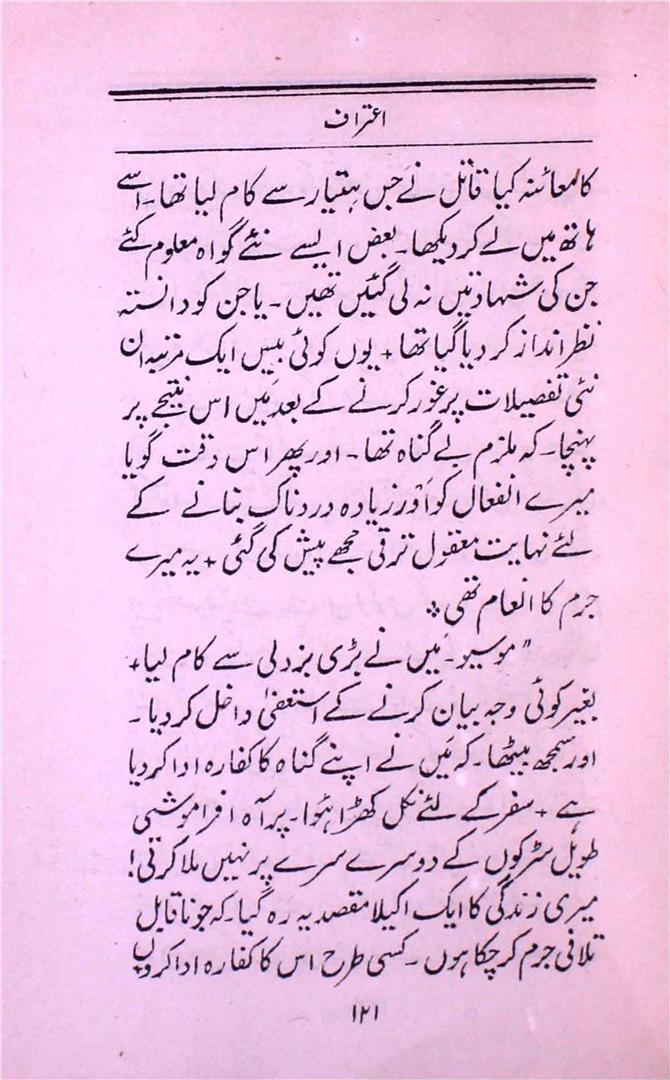 اعتراف
کا معائنہ کیا قاتل نے جس ہتیار سے کام لیا تھا۔ اسے
ہاتھ میں لے کر دیکھا۔ بعض ایسے نئے گواہ معلوم کئے
جن کی شہادتیں نہ لی گئیں تھیں۔ یا جن کو دانستہ
نظر انداز کر دیا گیا تھا + یوں کوئی بیس ایک مرتبہ ان
نئی تفصیلات پر غور کرنے کے بعد مَیں اس نتیجے پر
پہنچا۔ کہ ملزم بے گناہ تھا۔ اور پھر اس وقت گویا
میرے انفعال کو اَور زیادہ دردناک بنانے کے
لئے نہایت معقول ترقی مجھے پیش کی گئی + یہ میرے
جرم کا انعام تھی ❖
”موسیو۔ مَیں نے بڑی بزدلی سے کام لیا +
بغیر کوئی وجہ بیان کرنے کے استعفیٰ داخل کر دیا۔
اور سمجھ بیٹھا۔ کہ مَیں نے اپنے گناہ کا کفارہ ادا کردیا
ہے + سفر کے لئے نکل کھڑا ہؤا۔ پر آہ افراموشی
طویل سڑکوں کے دوسرے سرے پر نہیں ملا کرتی!
میری زندگی کا ایک اکیلا مقصد یہ رہ گیا۔ کہ جو ناقابل
تلافی جرم کر چکا ہوں۔ کسی طرح اس کا کفارہ ادا کروں
۱۲۱